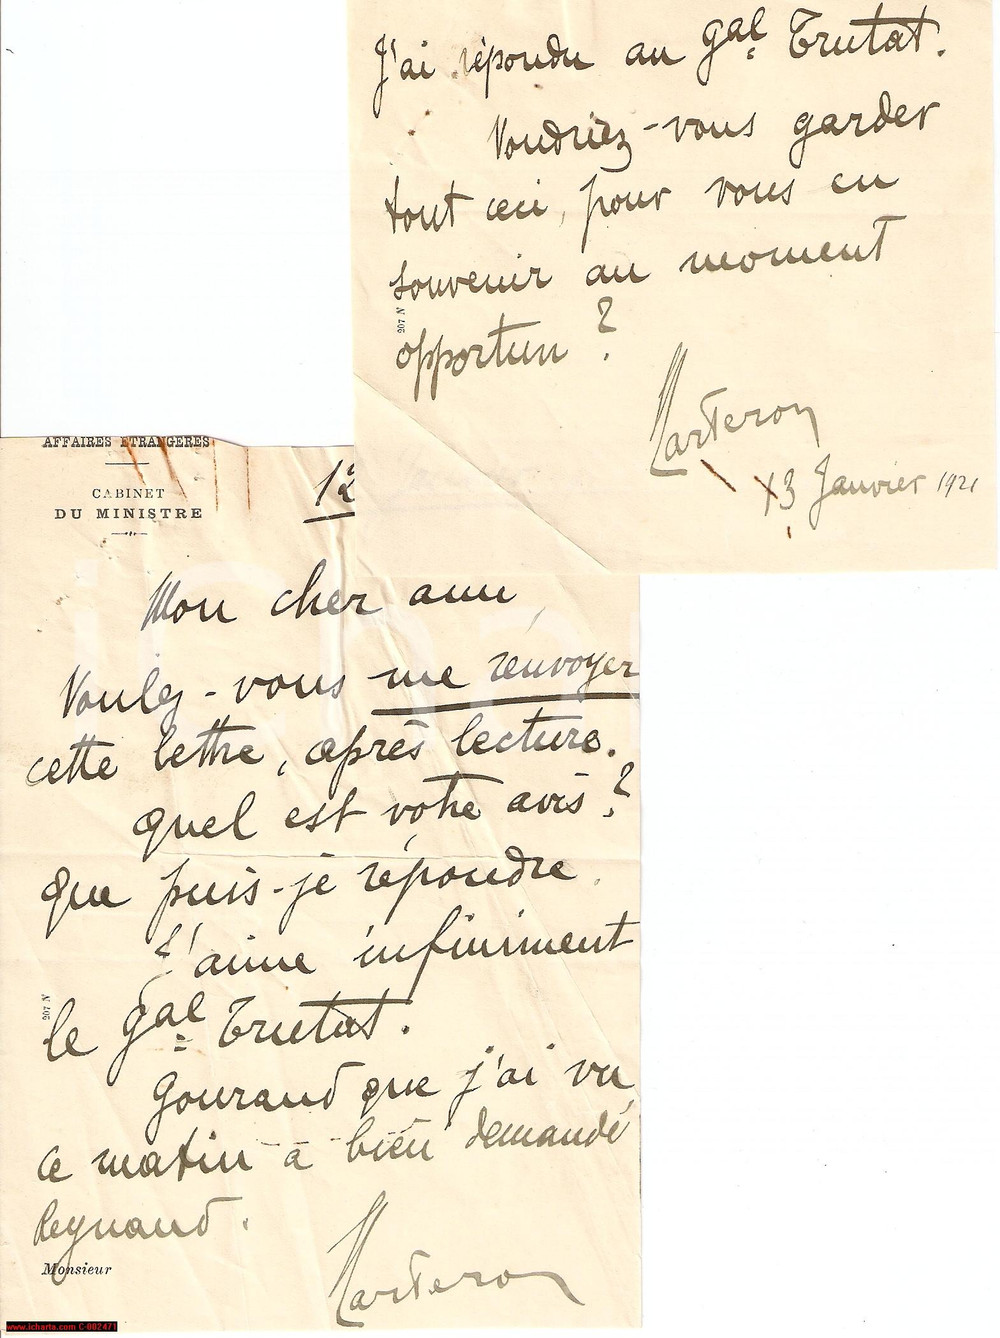 J'ai répondu au gal Trutat.
Voudriez-vous garder
tout ceci, pour vous en
souvenir au moment
opportun ?
207 N
Carteron
13 Janvier 1921
AFFAIRES ÉTRANGÈRES
CABINET
DU MINISTRE
12
Mon cher ami,
Voulez-vous me renvoyer
cette lettre, après lecture.
Quel est votre avis ?
Que puis-je répondre.
J'aime infiniment
207 N
le gal Trutat.
Gouraud que j'ai vu
ce matin a bien demandé
Reynaud.
Monsieur
Carteron
www.icharta.com C-002471